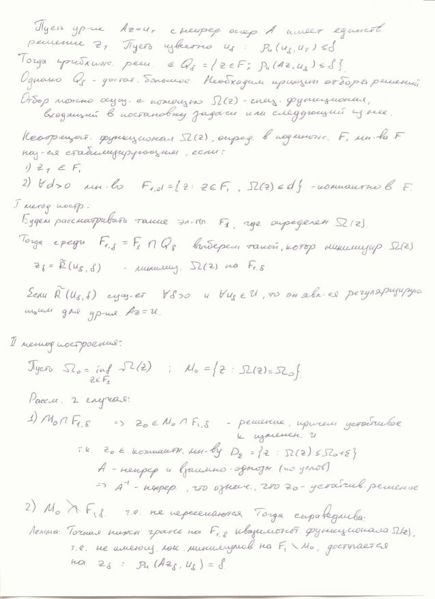 Пусть ур-ие Az=u_T с непрер опер A имеет единств
решение z_T Пусть известно u_δ : ρ_u(u_δ, u_T)≤δ
Тогда приближ. реш. ∈ Q_δ = {z∈F; ρ_u(Az, u_δ)≤δ}
Однако Q_δ - достат. большое. Необходим принцип отбора решений
Отбор можно осущ. с помощью Ω(z) - спец. функционал,
входящий в постановку задачи или следующий из нее.
Неотрицат. функционал Ω(z), опред. в подмнож. F₁ мн-ва F
наз-ся стабилизирующим, если:
1) z_T ∈ F₁
2) ∀d>0 мн-во F_{1,d}={z: z∈F₁, Ω(z)≤d} - компактно в F.
I метод постр.
Будем рассматривать такие эл-ты F₁, где определен Ω(z)
Тогда среди F_{1,δ} = F₁ ∩ Q_δ выберем такой, котор минимизир Ω(z)
z_δ = R̃(u_δ, δ) - минимиз. Ω(z) на F_{1,δ}
Если R̃(u_δ, δ) сущ-ет ∀δ>0 и ∀u_δ∈U, то он явл-ся регуляризирую
щим для ур-ия Az=u.
II метод построения:
Пусть Ω₀ = inf_{z∈F₁} Ω(z) ; M₀ = {z : Ω(z)=Ω₀}.
Рассм. 2 случая:
1) M₀∩F_{1,δ} ⇒ z₀∈M₀∩F_{1,δ} - решение, причем устойчивое
к изменен. u
т.к. z₀∈ компактн. мн-ву D_δ = {z : Ω(z)≤Ω₀+δ}
A - непрер и взаимно-однозн (по услов)
⇒ A⁻¹ - непрер, что означ., что z₀ - устойчив решение
2) M₀ F_{1,δ} т.е. не пересекаются Тогда справедлива:
Лемма: Точная нижн грань на F_{1,δ} функционала Ω(z),
т.е. не имеющ. лок минимумов на F₁\M₀, достигается
на z_δ : ρ_u(Az_δ, u_δ) = δ